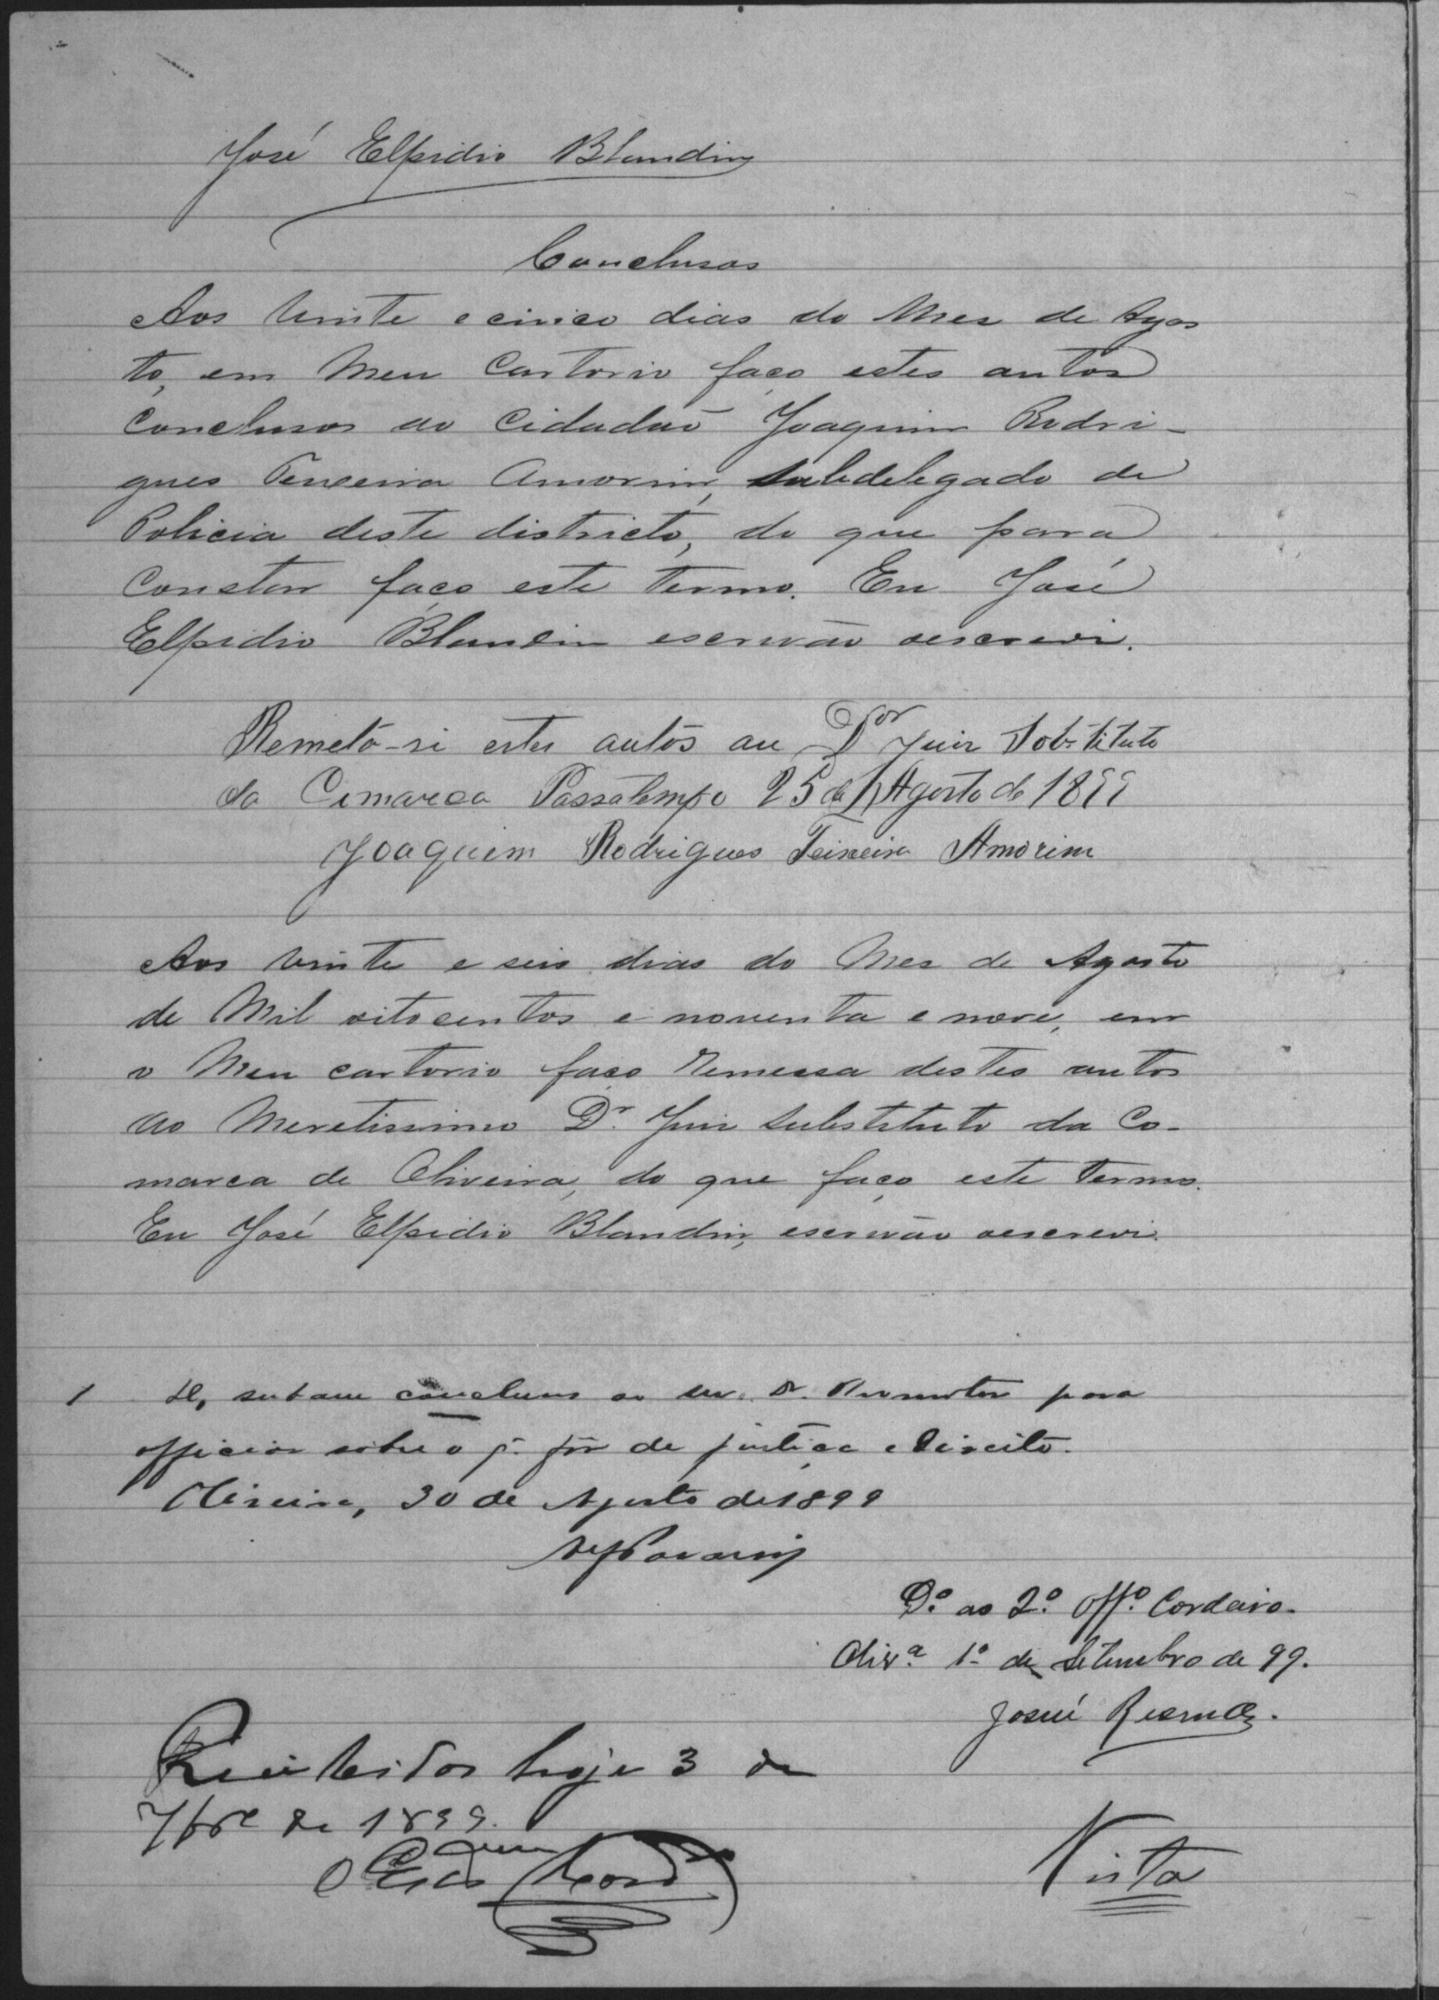 José Elpidio Blandin
Conclusos
Aos vinte e cinico dias do Mez de Agos
to, em Meu Cartorio faço estes autos
Conclusos ao Cidadão Joaquim Rodri-
gues Teixeira Amorim, subdelegado de
Policia deste districto, do que para
Constar faço este termo. Eu José
Elpidio Blandin escrivão oescrevi.
Remetá-si estes autos au Dor Juiz Sobstituto
da Cimarca Passatempo 25 de Agosto de 1899
Joaquim Rodrigues Teixeira Amorim
Aos vinte e seis dias do Mez de Agosto
de Mil oitocentos e noventa e nove, em
o Meu cartorio faço remessa destes autos
ao Meretissimo Dr. Juiz substituto da Co-
marca de Oliveira, do que faço este termo.
Eu José Elpidio Blandin, escrivão oescrevi.
1 D, subam conclusos ao snr. Dr. Promotor para
officiar sobre o q. fôr de justiça e Direito.
Oliveira, 30 de Agosto de 1899
Do. ao 2º. Offº. Cordeiro.
Olivª. 1º de Setembro de 99.
Josué
Recibidos hoje 3 de
7bre de 1899.
O
Vista